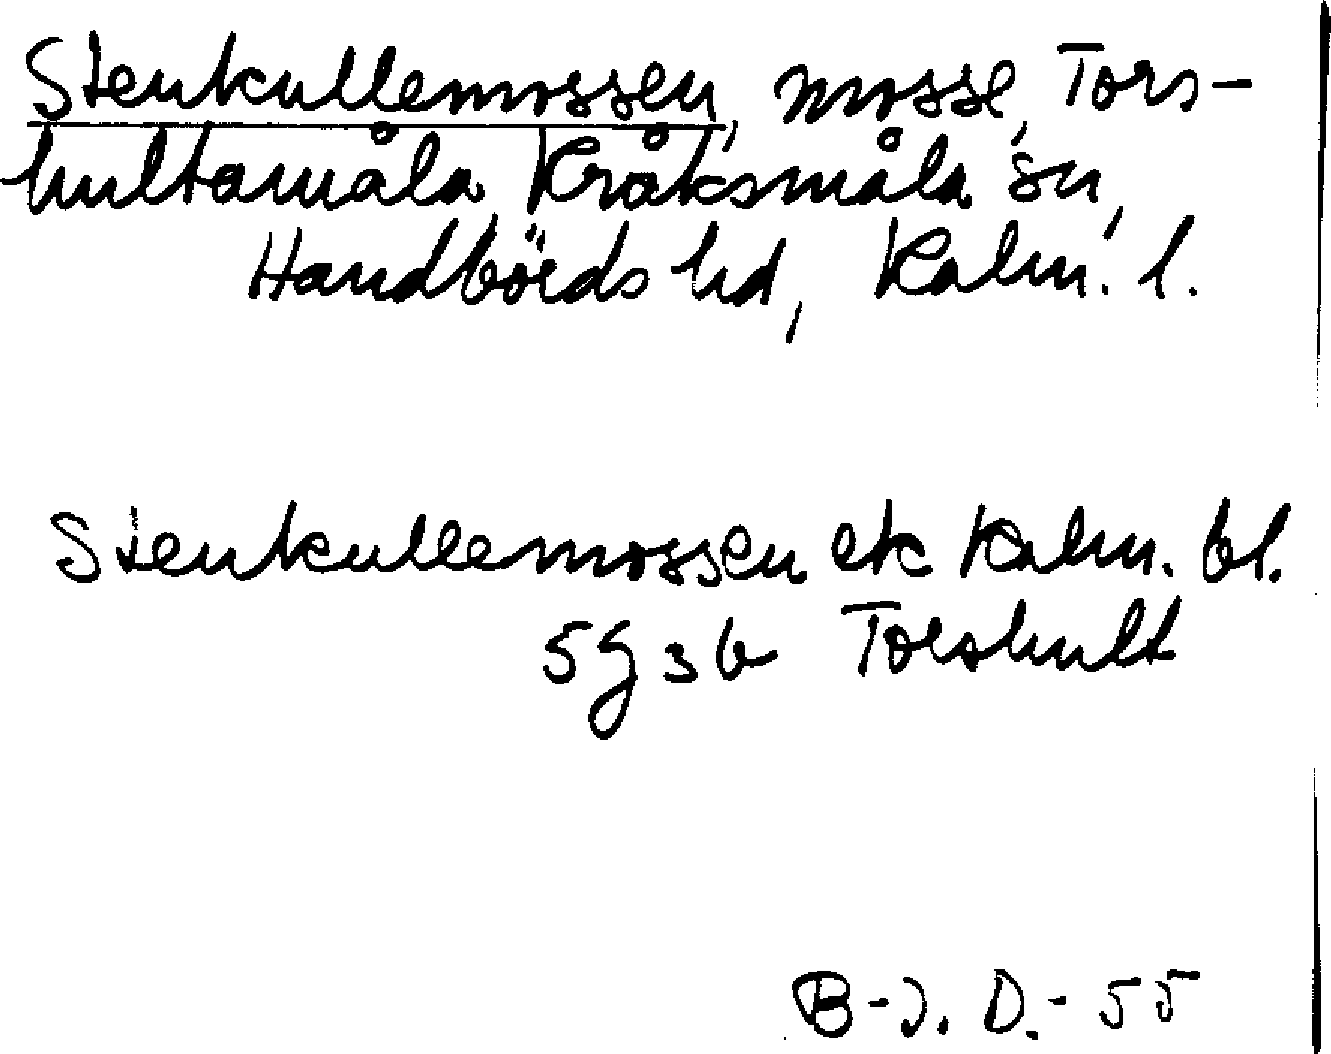 Stenkullemossen, mosse, Tors-
hultamåla, Kråksmåla sn,
Handbörds hd, Kalm. l.
Stenkullemossen ek Kalm. bl.
5g 3b Torshult
B-J. D. - 55